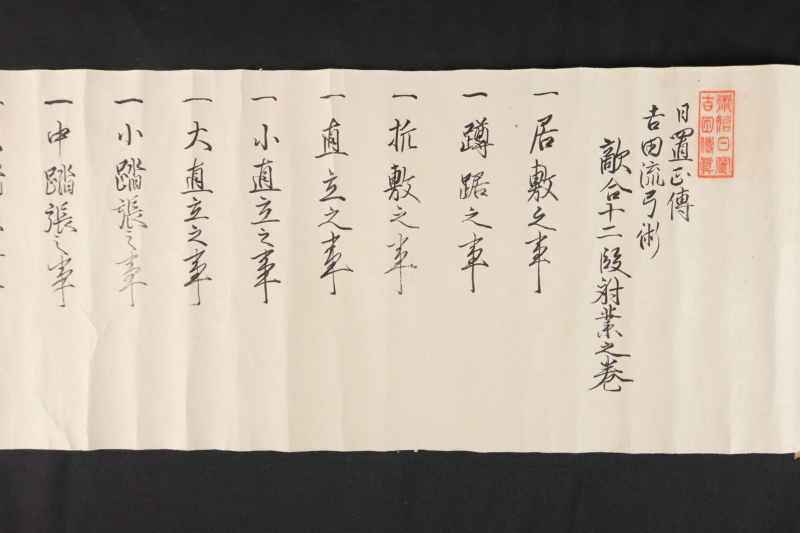 日置正傳
吉田流弓術
敵合十二段射業之巻
一居敷之事
一蹲踞之事
一折敷之事
一直立之事
一小直立之事
一大直立之事
一小踏張之事
一中踏張之事